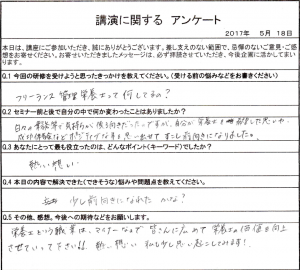 講演に関する アンケート
2017年 5月 18日
本日は、講座にご参加いただき、誠にありがとうございます。差し支えのない範囲で、忌憚のないご意見・ご感想をお寄せください。お寄せいただきましたメッセージは、必ず拝読させていただき、今後企画に活かしてまいります。
Q.1 今回の研修を受けようと思ったきっかけを教えてください。(受ける前の悩みなどをお書きください)
フリーランス 管理栄養士って何してるの?
Q.2 セミナー前と後で自分の中で何か変わったことはありましたか?
日々の業務等で気持ちが後ろ向きだったのですが、自分が栄養士を
成功体験など ポジティブな事を思い出せて すこし前向きになりました。
Q.3 あなたにとって最も役立ったのは、どんなポイント(キーワード)でしたか?
熱い想い
Q.4 本日の内容で解決できた(できそうな)悩みや問題点を教えてください。
少し前向きになれた かな?
Q.5 その他、感想、今後への期待などをお願いします。
栄養士という職業は、マイナーなので 皆さんに広めて 栄養士の価値を向上
させていって下さい!! 熱い想い 私も少し思い起こしてみます!